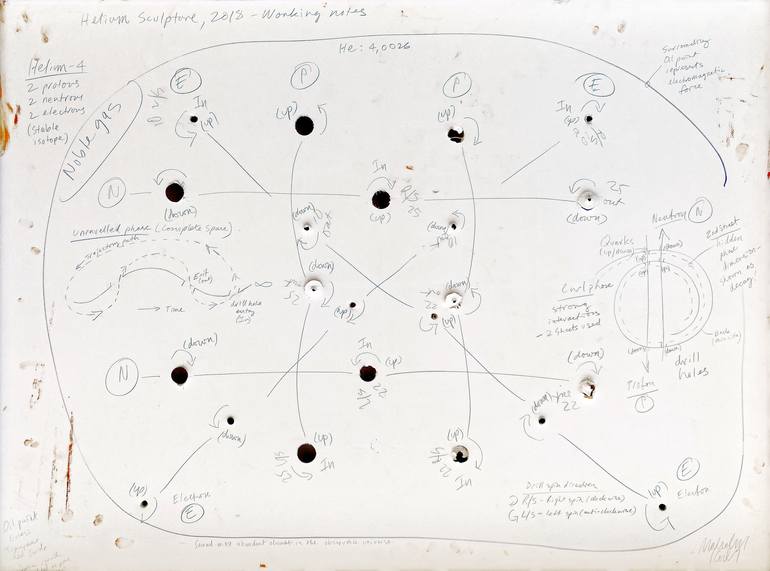 Helium Sculpture, 2018 - Working notes
He: 4,0026
Helium-4
2 protons
2 neutrons
2 electrons
(stable
isotope)
Noble gas
Surrounding
Oil paint
represents
electromagnetic
force
E
P
P
E
In
(up)
(up)
(up)
In
(up)
N
(down)
In
R/S
25
(up)
25
out
(down)
unravelled phase (Complete space)
Trajectory path
Exit
(out)
∞
Time
drill hole
entry
(down)
(down)
(down)
(down)
(up)
(up)
Neutron N
Quarks
(up/down)
Curl phase
strong
interactions
- 2 sheets used
2nd sheet
hidden
phase
dimension -
shown as
decay
(down)
(up)
(up)
(down)
(down)
drill
holes
Proton
P
N
(down)
In
(up)
22
(down)
22
(down)
(down)
(up)
In
(up)
In
(up)
Electron
E
Drill spin direction
R/S - Right spin (clockwise)
L/S - Left spin (anticlockwise)
(up)
E
Electron
Second most abundant element in the observable universe
Oil paint